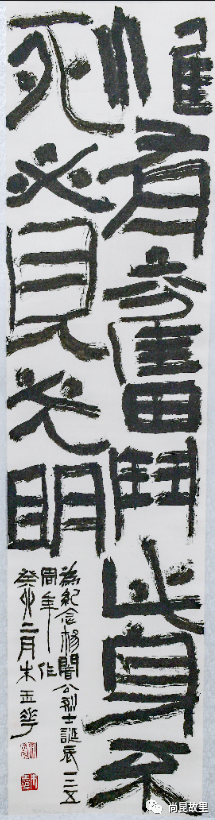 惟有奮鬥此身不
死必見光明
為紀念楊闇公烈士誕辰一二五
周年作
癸卯二月
尚昆故里